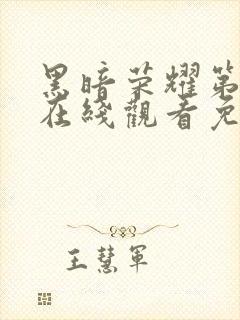 黑暗荣耀第
在线觀看免
王慧军